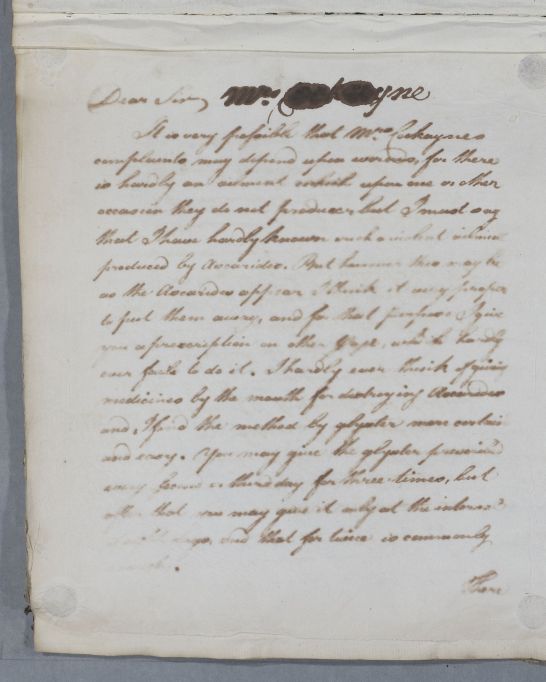 Dear Sir, Mrs yne
It is very possible that Mrs Cockaynes
complaints may depend upon worms, for there
is hardly an ailment which upon one or other
occasion they do not produce, but I must say
that I have hardly known such violent
produced by Ascarides. But however this may be
as the Ascarides appear I think it very proper
to put them away, and for that purpose I give
you a prescription on other Page, which hardly
ever fails to do it. I hardly ever think of giving
medicines by the mouth for destroying Ascarides
and I find the method by glyster more certain
and easy. You may give the glyster
every second or third day for three times, but
after that you may give it only at the interval
days, and that for twice is commonly
There